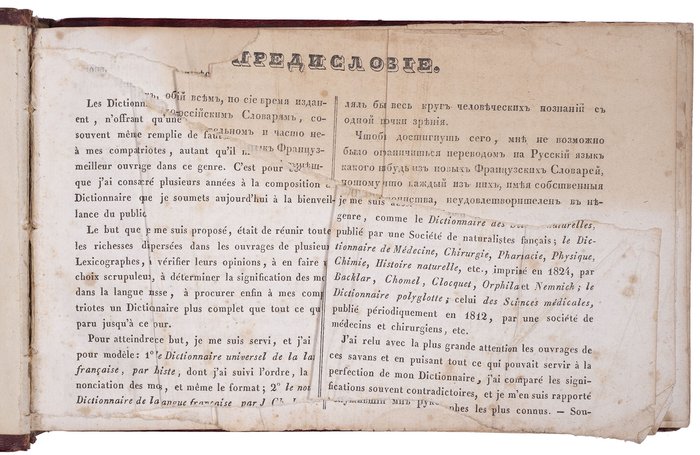 ПРЕДИСЛОВІЕ.
Les Dictionn
обій всѣмъ, по сіе время издан-
ent, n'offrant qu'une
оссійскимъ Словарямъ, со-
souvent même remplie de
тельномъ и часто не-
à mes compatriotes, autant qu'il
Француз-
meilleur ouvrage dans ce genre. C'est pour
que j'ai consacré plusieurs années à la composition d
Dictionnaire que je soumets aujourd'hui à la bienveil-
lance du public
Le but que je me suis proposé, était de réunir toute
les richesses dipersées dans les ouvrages de plusieu
Lexicographes, à vérifier leurs opinions, à en faire
choix scrupuleux, à déterminer la signification des mo
dans la langue usse, à procurer enfin à mes com
triotes un Dictionnaire plus complet que tout ce qu
paru jusqu'à ce our.
Pour atteindrece but, je me suis servi, et j'ai
pour modèle: 1° le Dictionnaire universel de la la
française, par biste, dont j'ai suivi l'ordre, la
nonciation des mo, et même le format; 2° le nou
Dictionnaire de la angue française par J Ch.
лялъ бы весь кругъ человѣческихъ познаній съ
одной почки зрѣнія.
Чтобі достигнуть сего, мнѣ не возможно
было ограничишься переводомъ на Русскій языкъ
какого нибудь изъ новыхъ Французскихъ Словарей,
потому что каждый изъ нихъ, имѣя собственныя
je me suis неудовлетворишеленъ въ нѣ-
genre, comme le Dictionnaire des naturelles,
publié par une Société de naturalistes fançais; le Dic-
tionnaire de Médecine, Chirurgie, Pharacie, Physique,
Chimie, Histoire naturelle, etc., imprimé en 1824, par
Backlar, Chomel, Clocquet, Orphila et Nemnich; le
Dictionnaire polyglotte; celui des Scinces médicales,
publié périodiquement en 1812, par une société de
médecins et chirurgiens, etc.
J'ai relu avec la plus grande attention les ouvrages de
ces savans et en puisant tout ce qui pouvait servir à la
perfection de mon Dictionnaire, j'ai comparé les signi-
fications souvent contradictoires, et je m'en suis rapporté
phes les plus connus. — Sou-